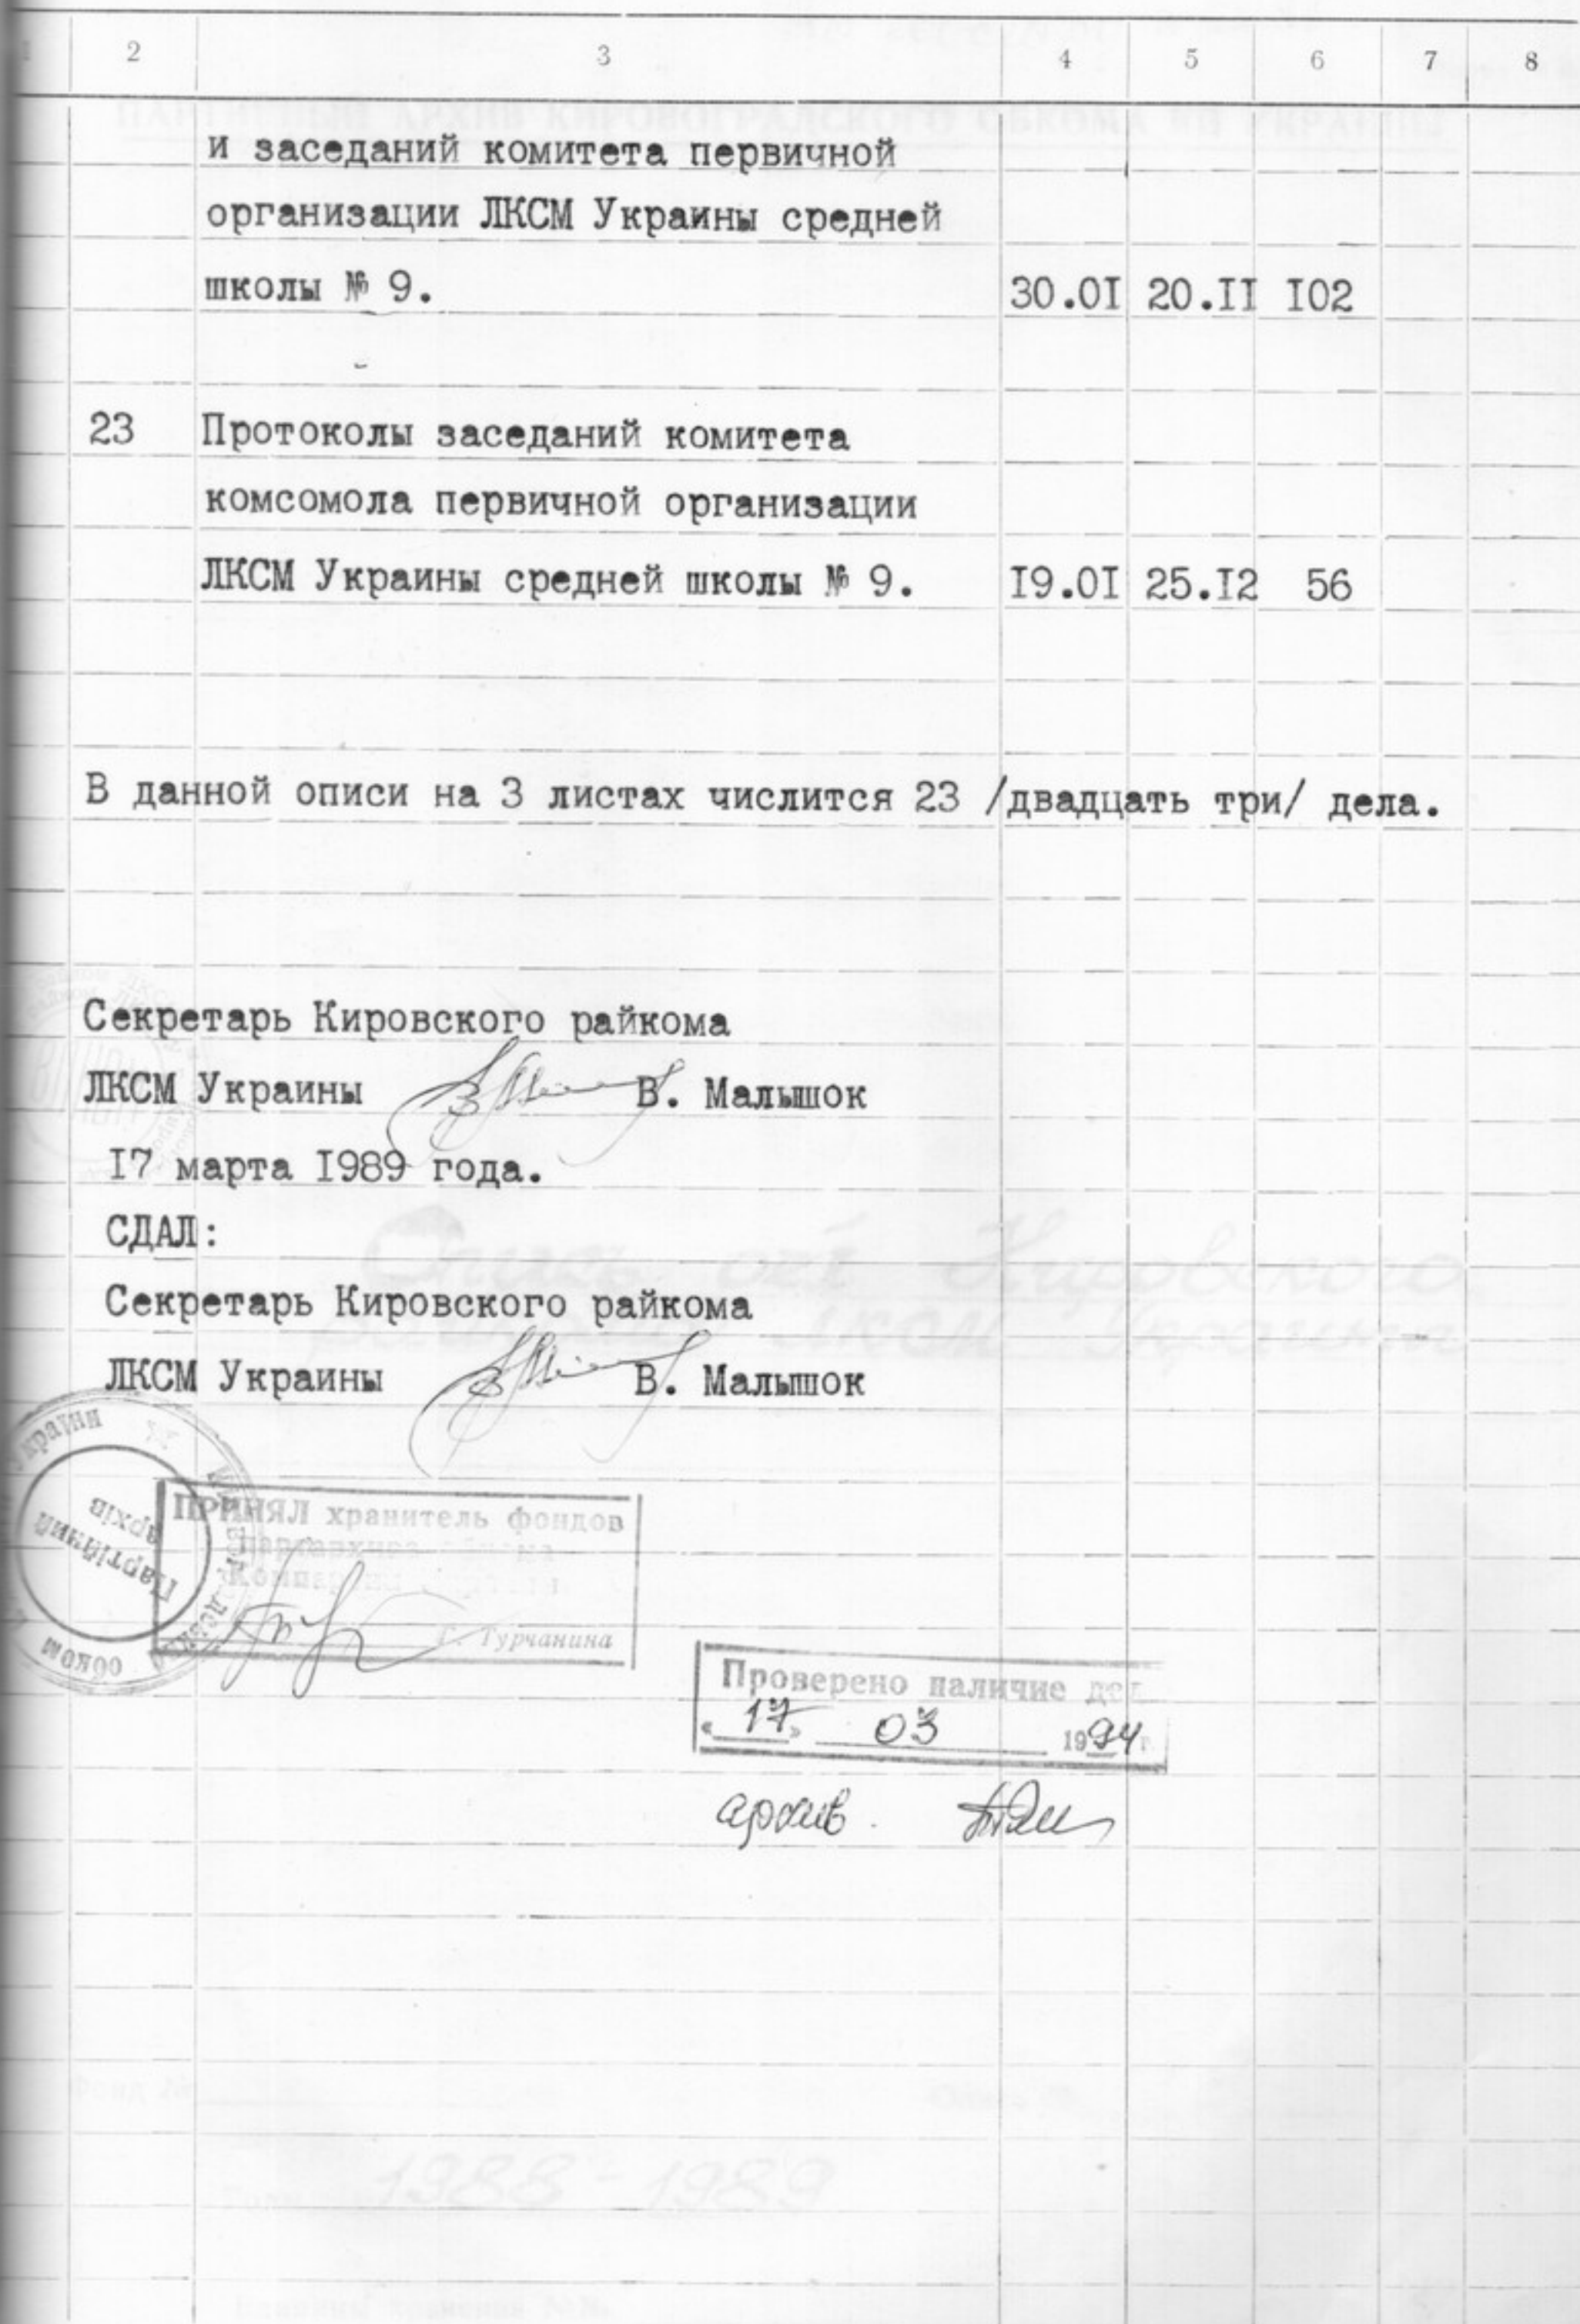 2 3 4 5 6 7 8
и заседаний комитета первичной
организации ЛКСМ Украины средней
школы № 9. 30.0I 20.II I02
23 Протоколы заседаний комитета
комсомола первичной организации
ЛКСМ Украины средней школы № 9. I9.0I 25.I2 56
В данной описи на 3 листах числится 23 /двадцать три/ дела.
Секретарь Кировского райкома
ЛКСМ Украины В. Малышок
I7 марта I989 года.
СДАЛ:
Секретарь Кировского райкома
ЛКСМ Украины В. Малышок
України
Партійний
архів
обком
ПРИНЯЛ хранитель фондов
Г. Турчанина
Проверено наличие дел
«17» 03 1994 г.
архив
1988-1989